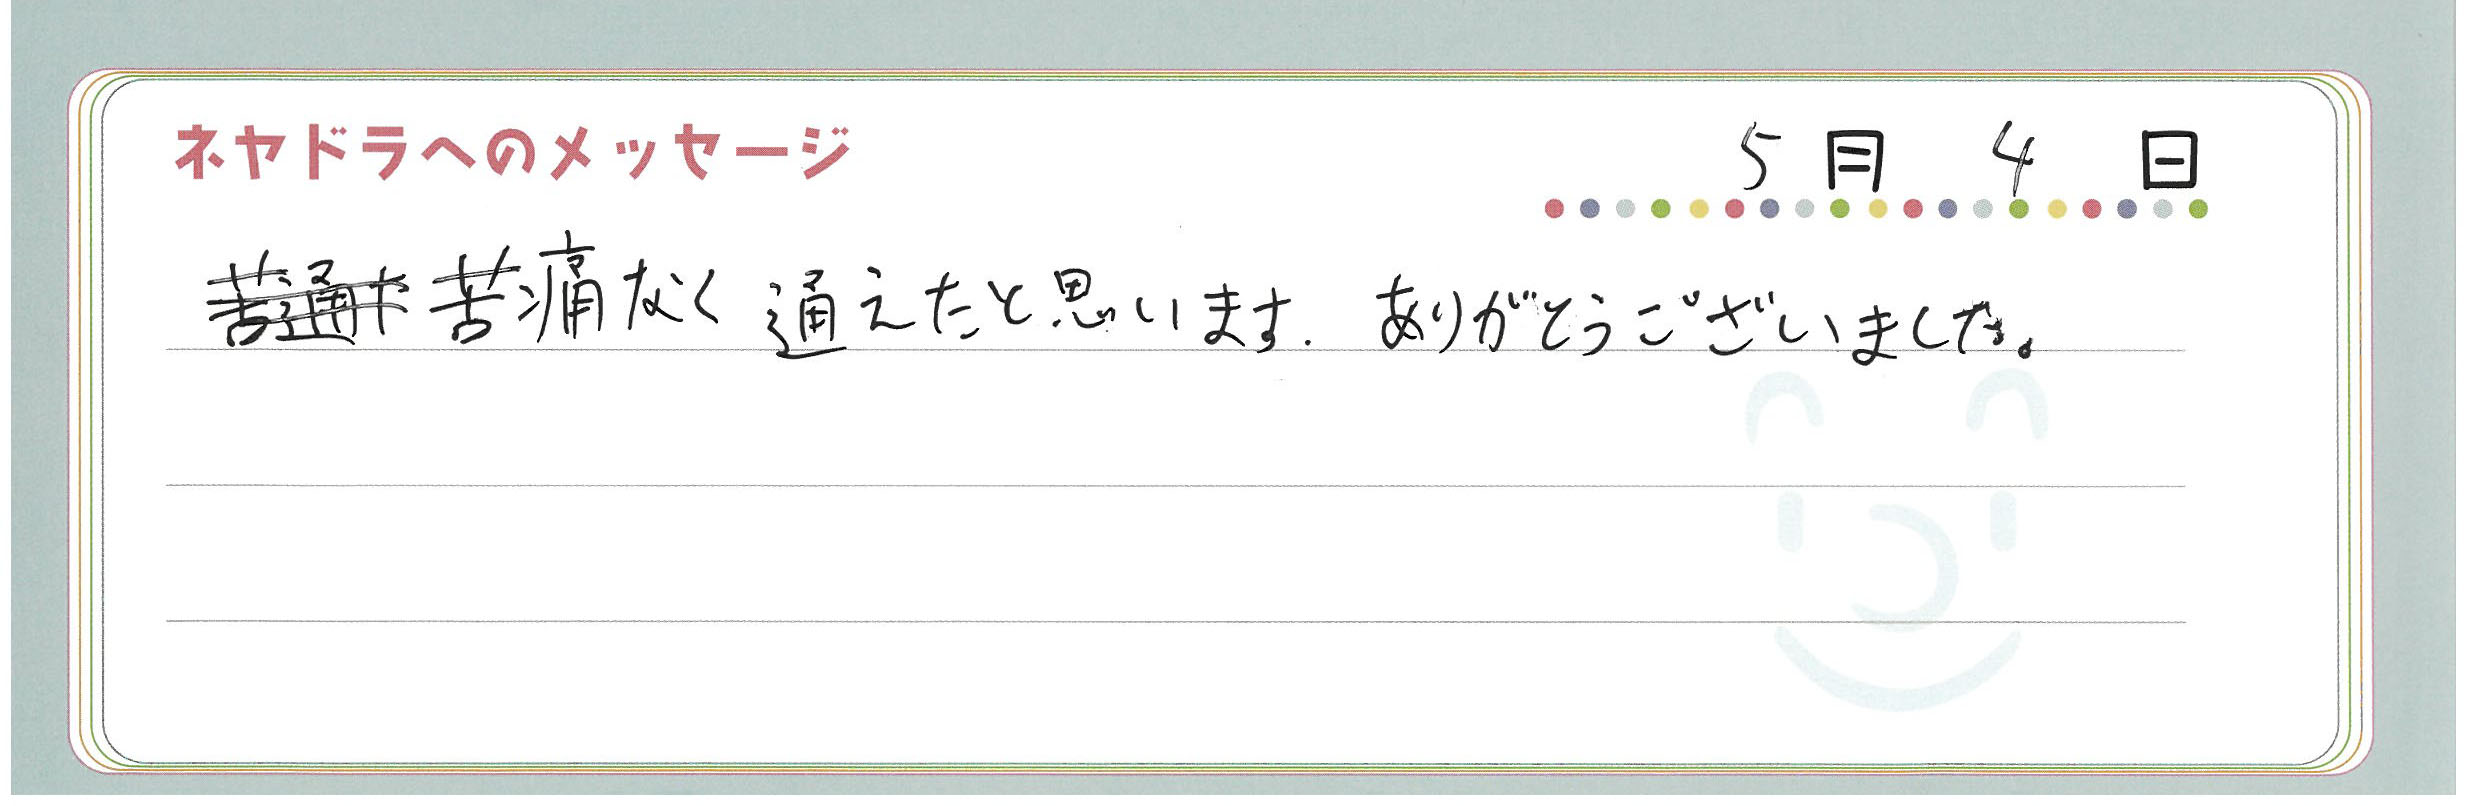 ネヤドラへのメッセージ 5月 4日
苦痛なく通えたと思います. ありがとうございました。